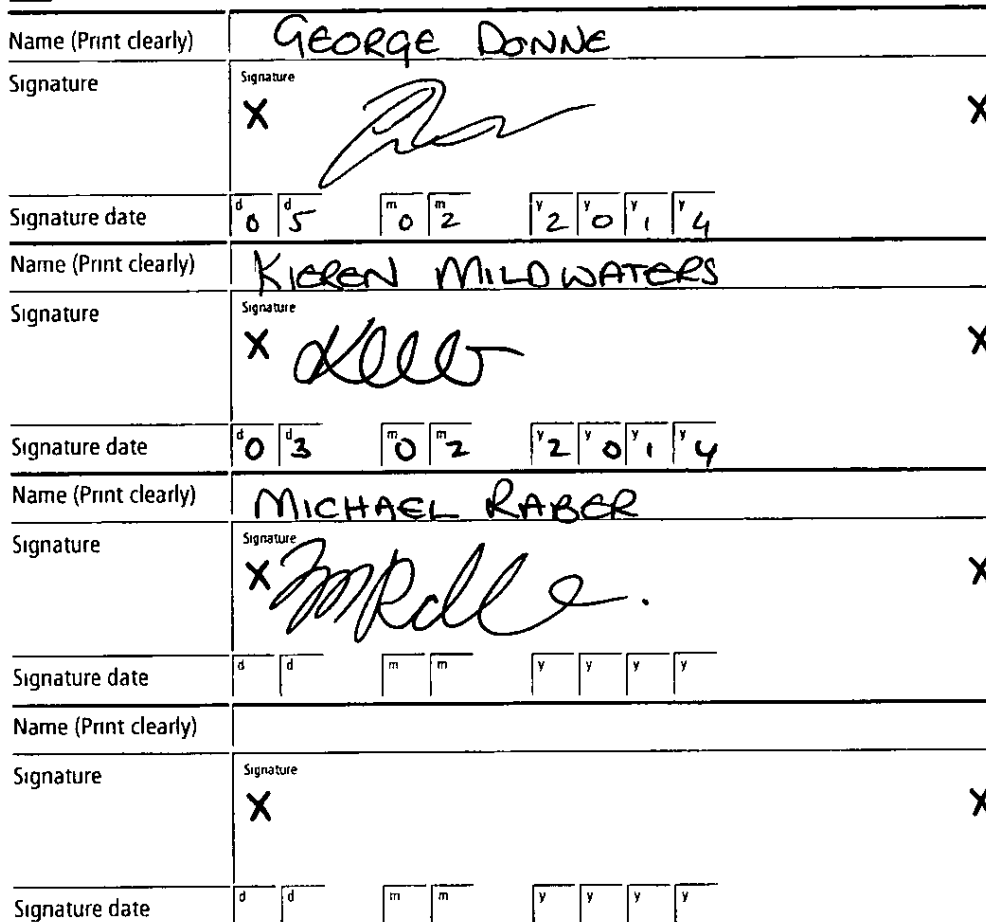 Name (Print clearly) GEORGE DONNE
Signature Signature
X X
Signature date d 0 d 5 m 0 m 2 y 2 y 0 y 1 y 4
Name (Print clearly) KIEREN MILDWATERS
Signature Signature
X X
Signature date d 0 d 3 m 0 m 2 y 2 y 0 y 1 y 4
Name (Print clearly) MICHAEL RABER
Signature Signature
X X
Signature date d d m m y y y y
Name (Print clearly)
Signature Signature
X X
Signature date d d m m y y y y